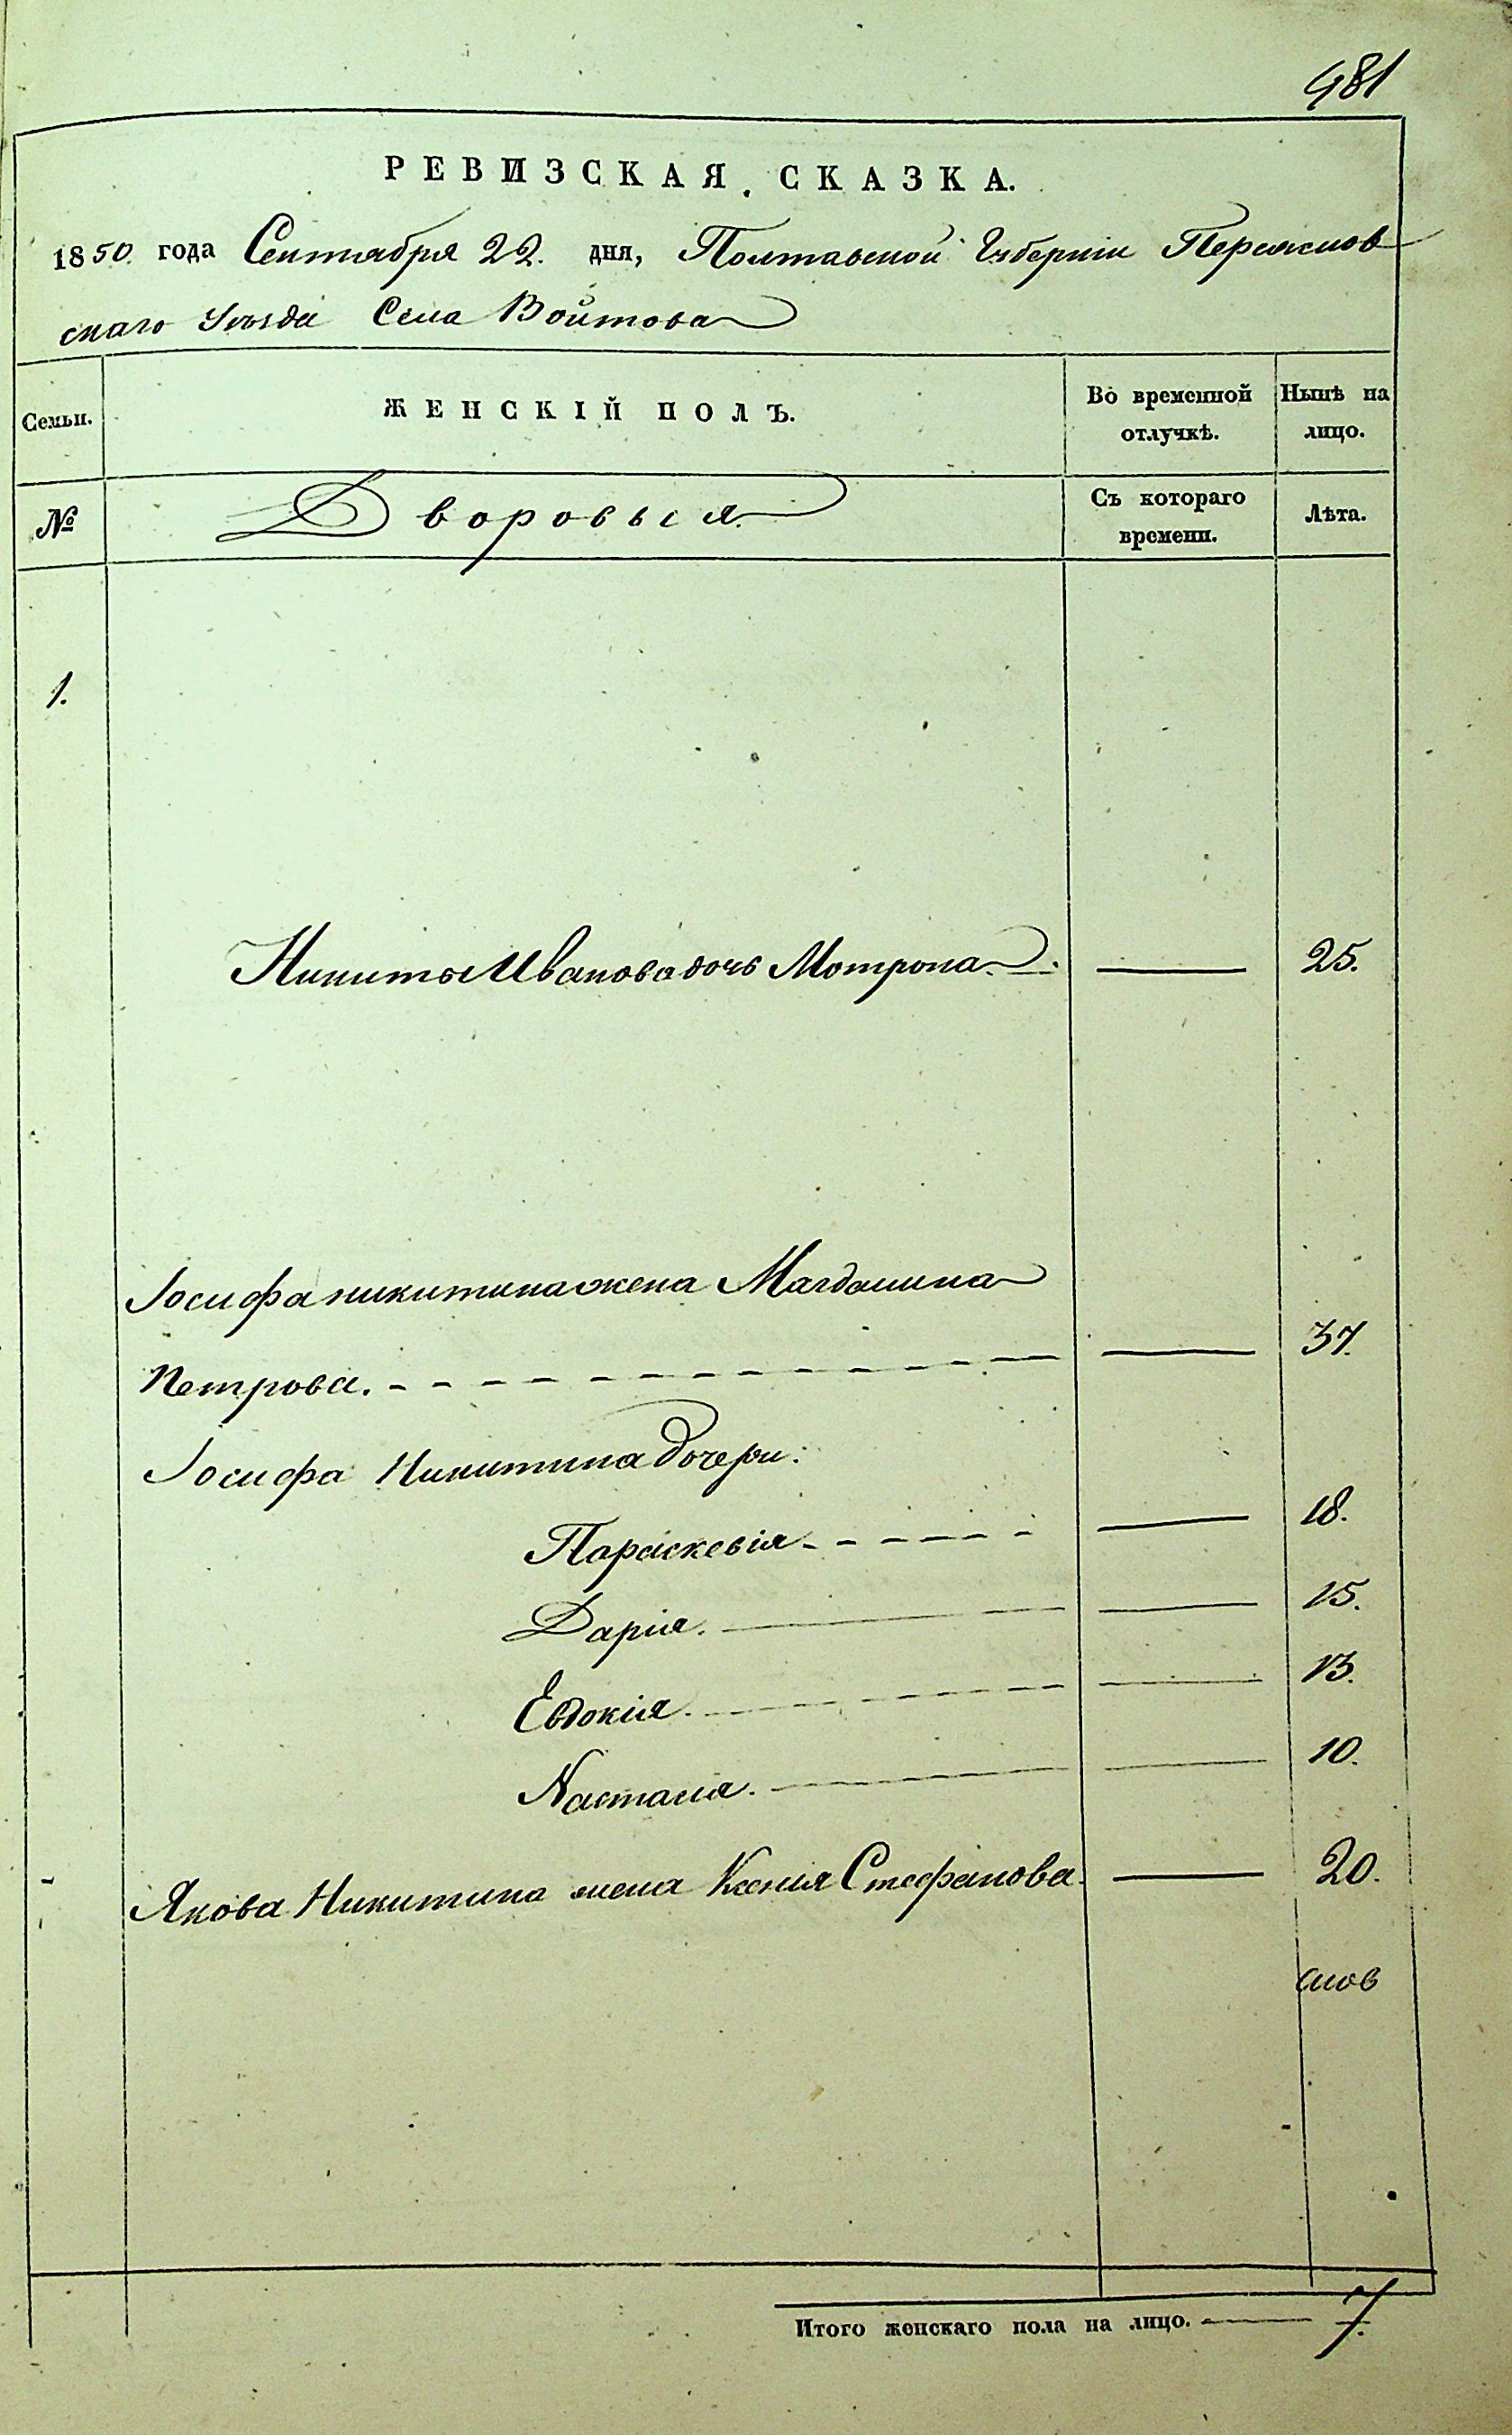 481
РЕВИЗСКАЯ СКАЗКА.
1850 года Сентября 22. дня, Полтавской Губерніи Переяслов
скаго Уѣзда Села Войтова
Семьи.
ЖЕНСКІЙ ПОЛЪ.
Во временной отлучкѣ.
Нынѣ на лицо.
№
Дворовыя.
Съ котораго времени.
Лѣта.
1.
Никиты Иванова дочь Мотрона. 25.
Іосифа никитина жена Магдалина
Петрова. 37.
Іосифа Никитина дочери:
Параскевія 18.
Дарія. 15.
Евдокія. 13.
Настасія. 10.
Якова Никитина жена Ксенія Стефанова. 20.
Итого женскаго пола на лицо. 7.